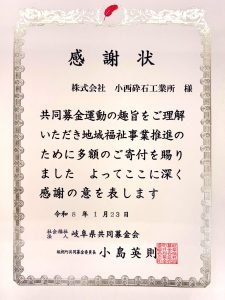 感謝状
株式会社 小西砕石工業所 様
共同募金運動の趣旨をご理解
いただき地域福祉事業推進の
ために多額のご寄付を賜り
ました よってここに深く
感謝の意を表します
令和8年1月23日
社会福祉法人 岐阜県共同募金会
共同募金委員長 小島英則